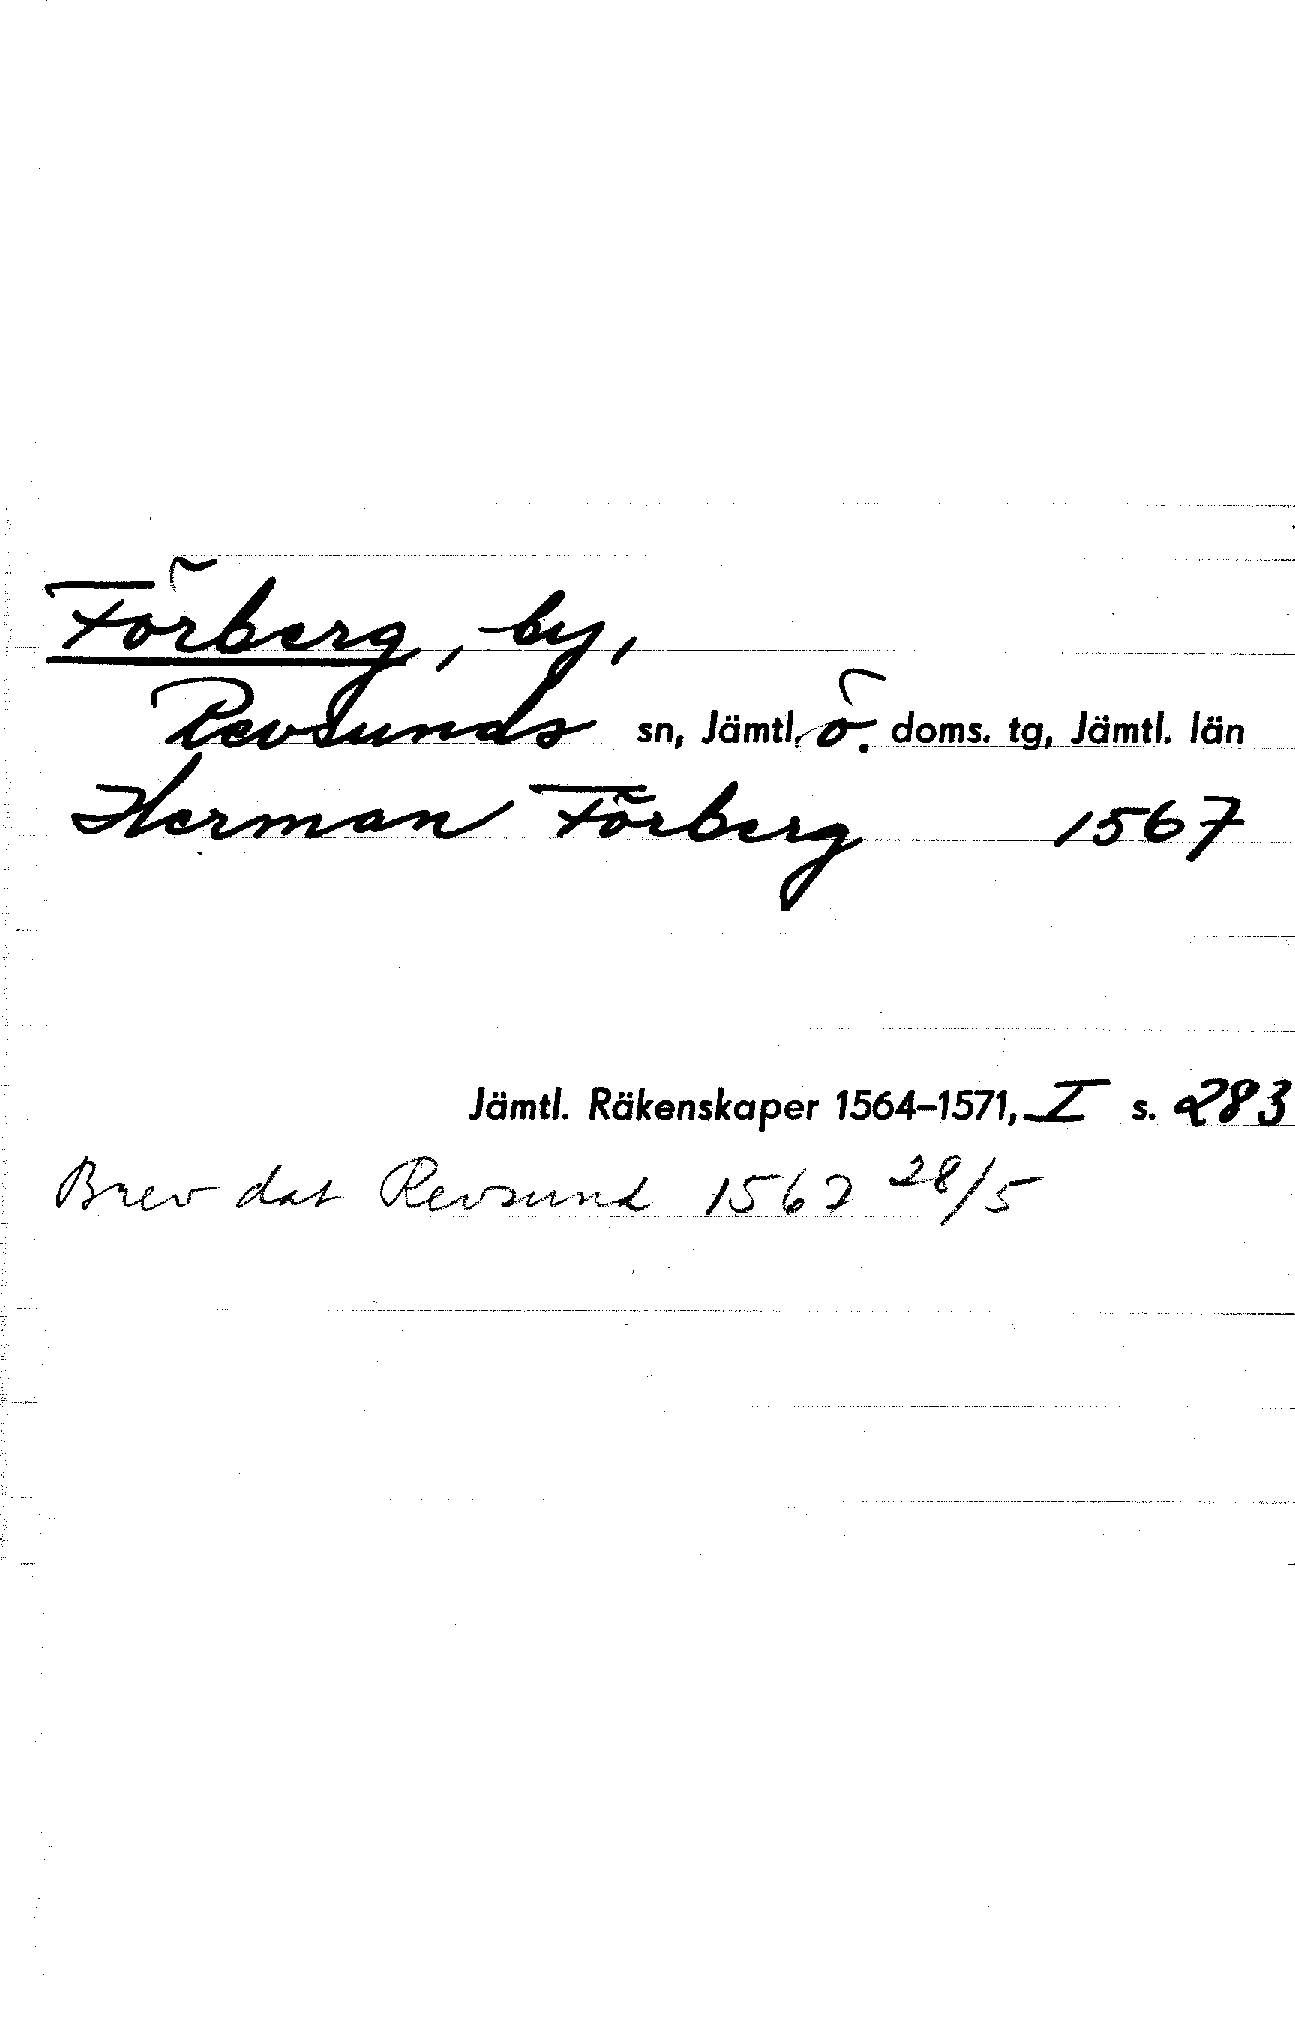 Förberg, by,
Revsunds sn, Jämtl. ö. doms. tg, Jämtl. län
Herman Förberg 1567
Jämtl. Räkenskaper 1564–1571, I s. 283
Brev dat Revsund 1567 28/5